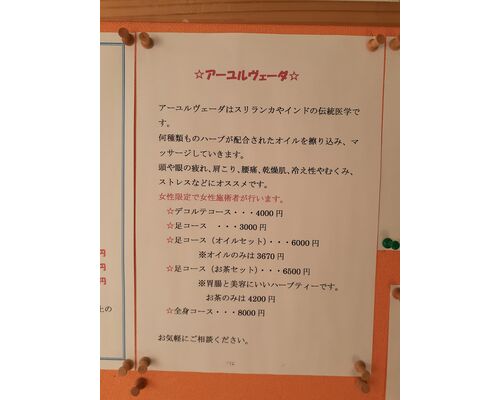 ☆アーユルヴェーダ☆
アーユルヴェーダはスリランカやインドの伝統医学で
す。
何種類ものハーブが配合されたオイルを擦り込み、マ
ッサージしていきます。
頭や眼の疲れ、肩こり、腰痛、乾燥肌、冷え性やむくみ、
ストレスなどにオススメです。
女性限定で女性施術者が行います。
☆デコルテコース・・・4000 円
☆足コース ・・・3000 円
☆足コース（オイルセット）・・・6000 円
※オイルのみは 3670 円
☆足コース（お茶セット）・・・6500 円
※胃腸と美容にいいハーブティーです。
お茶のみは 4200 円
☆全身コース・・・8000 円
お気軽にご相談ください。
円
円
円
上の